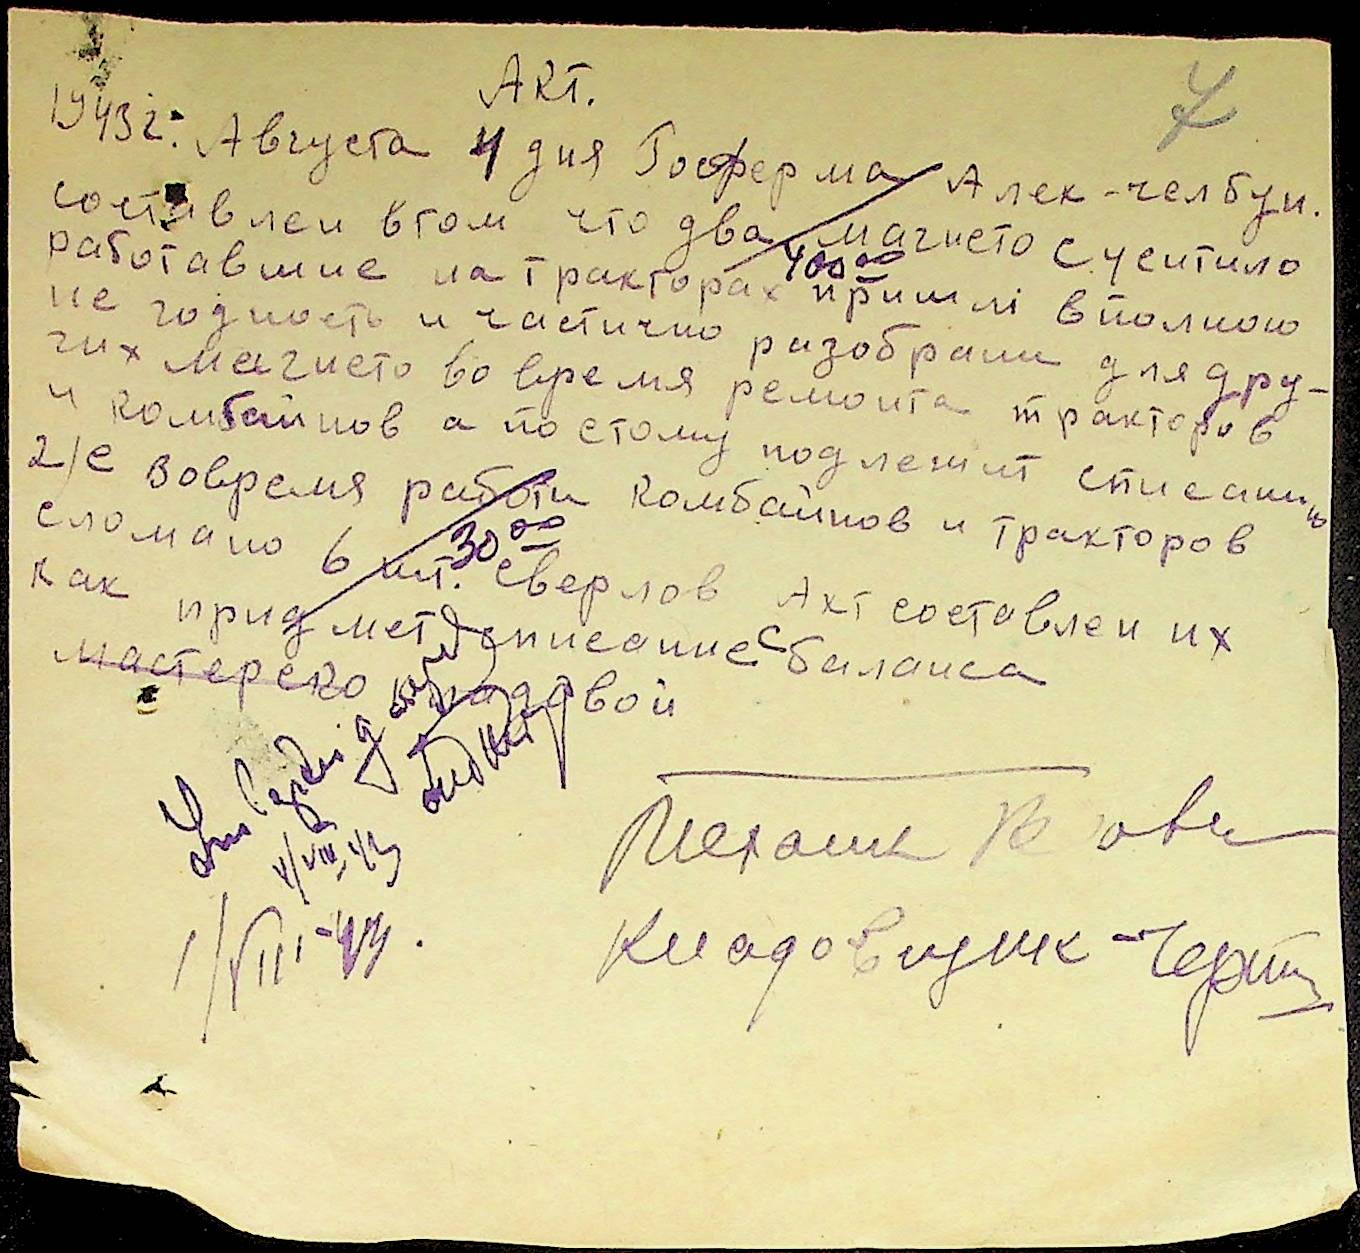 7
Акт.
1943 г. Августа 4 дня Госферма Алек-челбун.
составлен втом что два магнето Сцентило
400 00
работавшие на тракторах пришлі вполною
не годность и частично разобрани для дру-
гих магнето во время ремонта тракторов
и комбайнов а по етому подлежит списанию
2/е вовремя работи комбайнов и тракторов
30 00
сломано 6 шт. сверлов Акт составлен их
как придмет списание с баланса
мастерско кладовой
V/VIII-43
1/VIII-43.
Механик
Кладовщик -